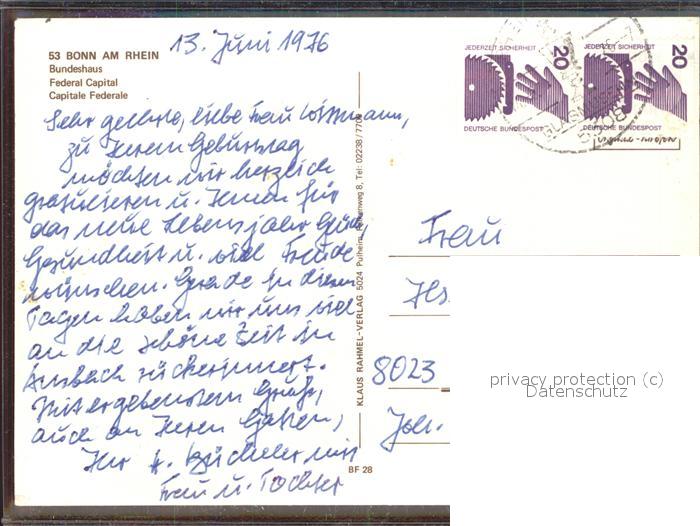 13. Juni 1976
53 BONN AM RHEIN
Bundeshaus
Federal Capital
Capitale Federale
Sehr geehrte, liebe Frau
zu Ihrem Geburtstag
möchten wir herzlich
gratulieren u. Ihnen für
das neue Lebensjahr Glück,
Gesundheit u. viel Freude
wünschen. Gerade in diesen
Tagen haben wir uns viel
an die schöne Zeit in
Ansbach zurückerinnert.
Mit ergebenstem Gruß,
auch an Ihren Gatten,
Ihr mit
Frau u. Tochter
KLAUS RAHMEL-VERLAG 5024 Pulheim, 8, Tel: 02238/7709
BF 28
JEDERZEIT SICHERHEIT
20
DEUTSCHE BUNDESPOST
JEDERZEIT SICHERHEIT
20
DEUTSCHE BUNDESPOST
Frau
8023
Joh.
privacy protection (c)
Datenschutz